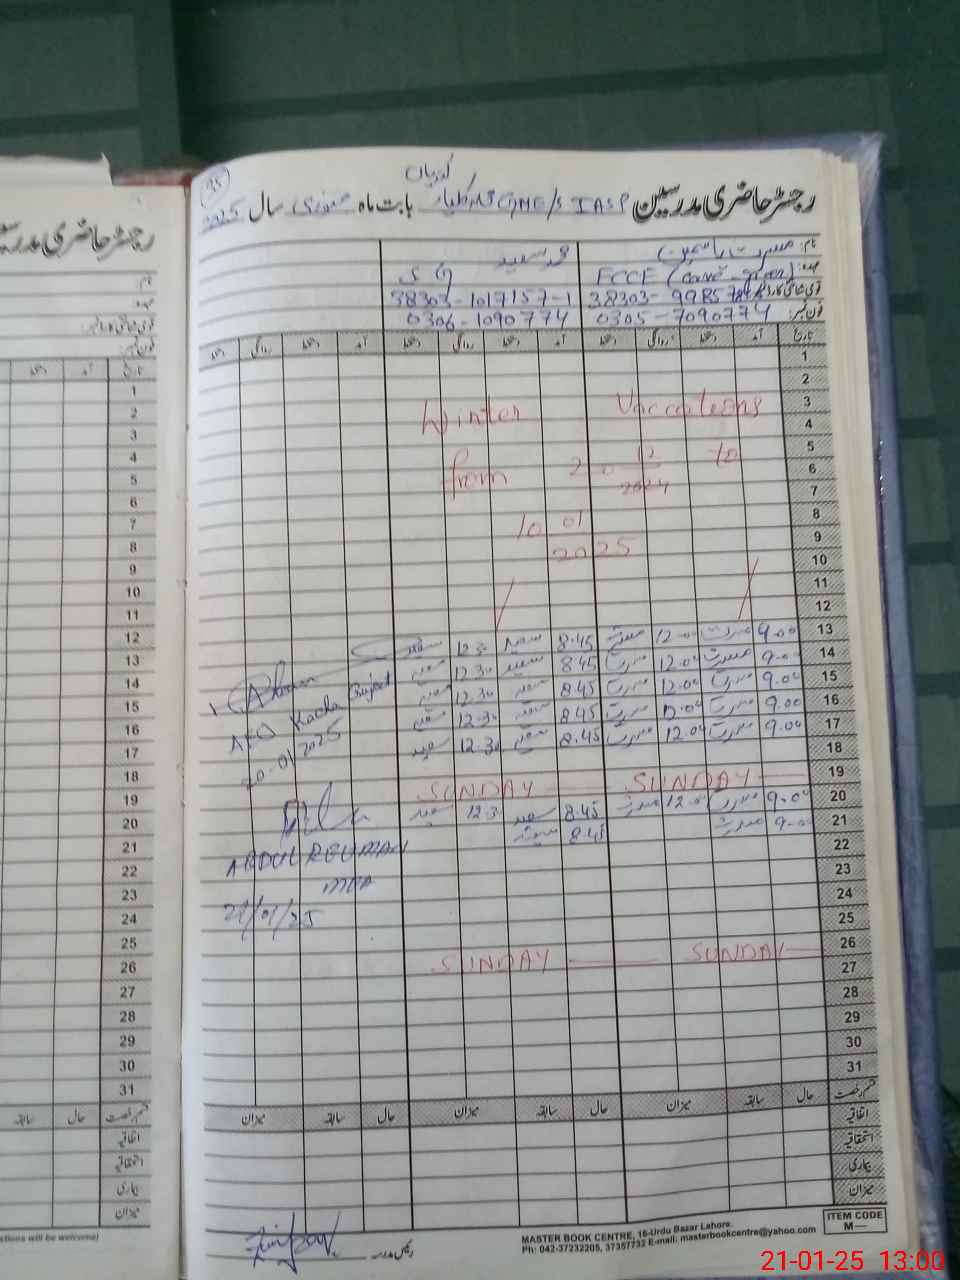 35
رجسٹر حاضری مدرسین IASP GPME/S بابت ماہ جنوری سال 2025
نام: مسرت یاسمین محمد سعید
عہدہ: ECCE (care-giver)
قومی شناختی کارڈ نمبر: 38303- 38303-1017157-1
فون نمبر: 0305-7090774 0306-1090774
تاریخ آمد دستخط روانگی دستخط آمد دستخط روانگی دستخط آمد دستخط روانگی دستخط
1
2
3 Winter Vaccations
4
5
6 from 20 12 2024 to
7
8
9 10 01 2025
10
11
12
13 9.00 مسرت 12.00 مسرت 8.45 سعید 12.30 سعید
14 9.00 مسرت 12.00 مسرت 8.45 سعید 12.30 سعید
15 9.00 مسرت 12.00 مسرت 8.45 سعید 12.30 سعید
16 9.00 مسرت 12.00 مسرت 8.45 سعید 12.30 سعید
17 9.00 مسرت 12.00 مسرت 8.45 سعید 12.30 سعید
18
19 SUNDAY SUNDAY
20 9.00 مسرت 12.00 مسرت 8.45 سعید 12.30 سعید
21 9.00 مسرت 8.45 سعید
22
23
24
25
26 SUNDAY SUNDAY
27
28
29
30
31
AEO Kacha Gujrat
20-01-2025
ABDUL REHMAN
MEA
21/01/25
قسم رخصت حال سابقہ میزان حال سابقہ میزان حال سابقہ میزان
اتفاقیہ
استحقاقیہ
بیماری
میزان
رئیس مدرسہ
MASTER BOOK CENTRE, 16-Urdu Bazar Lahore.
Ph: 042-37232205, 37357732 E-mail: masterbookcentre@yahoo.com
ITEM CODE
M—
رجسٹر حاضری مدرسین
نام
عہدہ
قومی شناختی کارڈ نمبر:
فون نمبر:
تاریخ آمد دستخط
1
2
3
4
5
6
7
8
9
10
11
12
13
14
15
16
17
18
19
20
21
22
23
24
25
26
27
28
29
30
31
قسم رخصت حال سابقہ
اتفاقیہ
استحقاقیہ
بیماری
میزان
stions will be welcome)
21-01-25 13:00